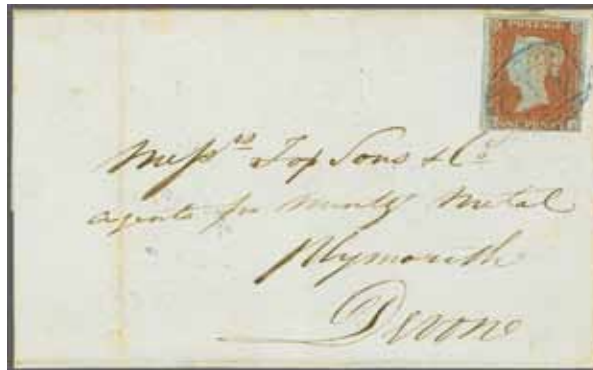 POSTAGE
ONE PENNY
Messrs Fox Sons & Co
agents for Muntz' Metal
Plymouth
Devon